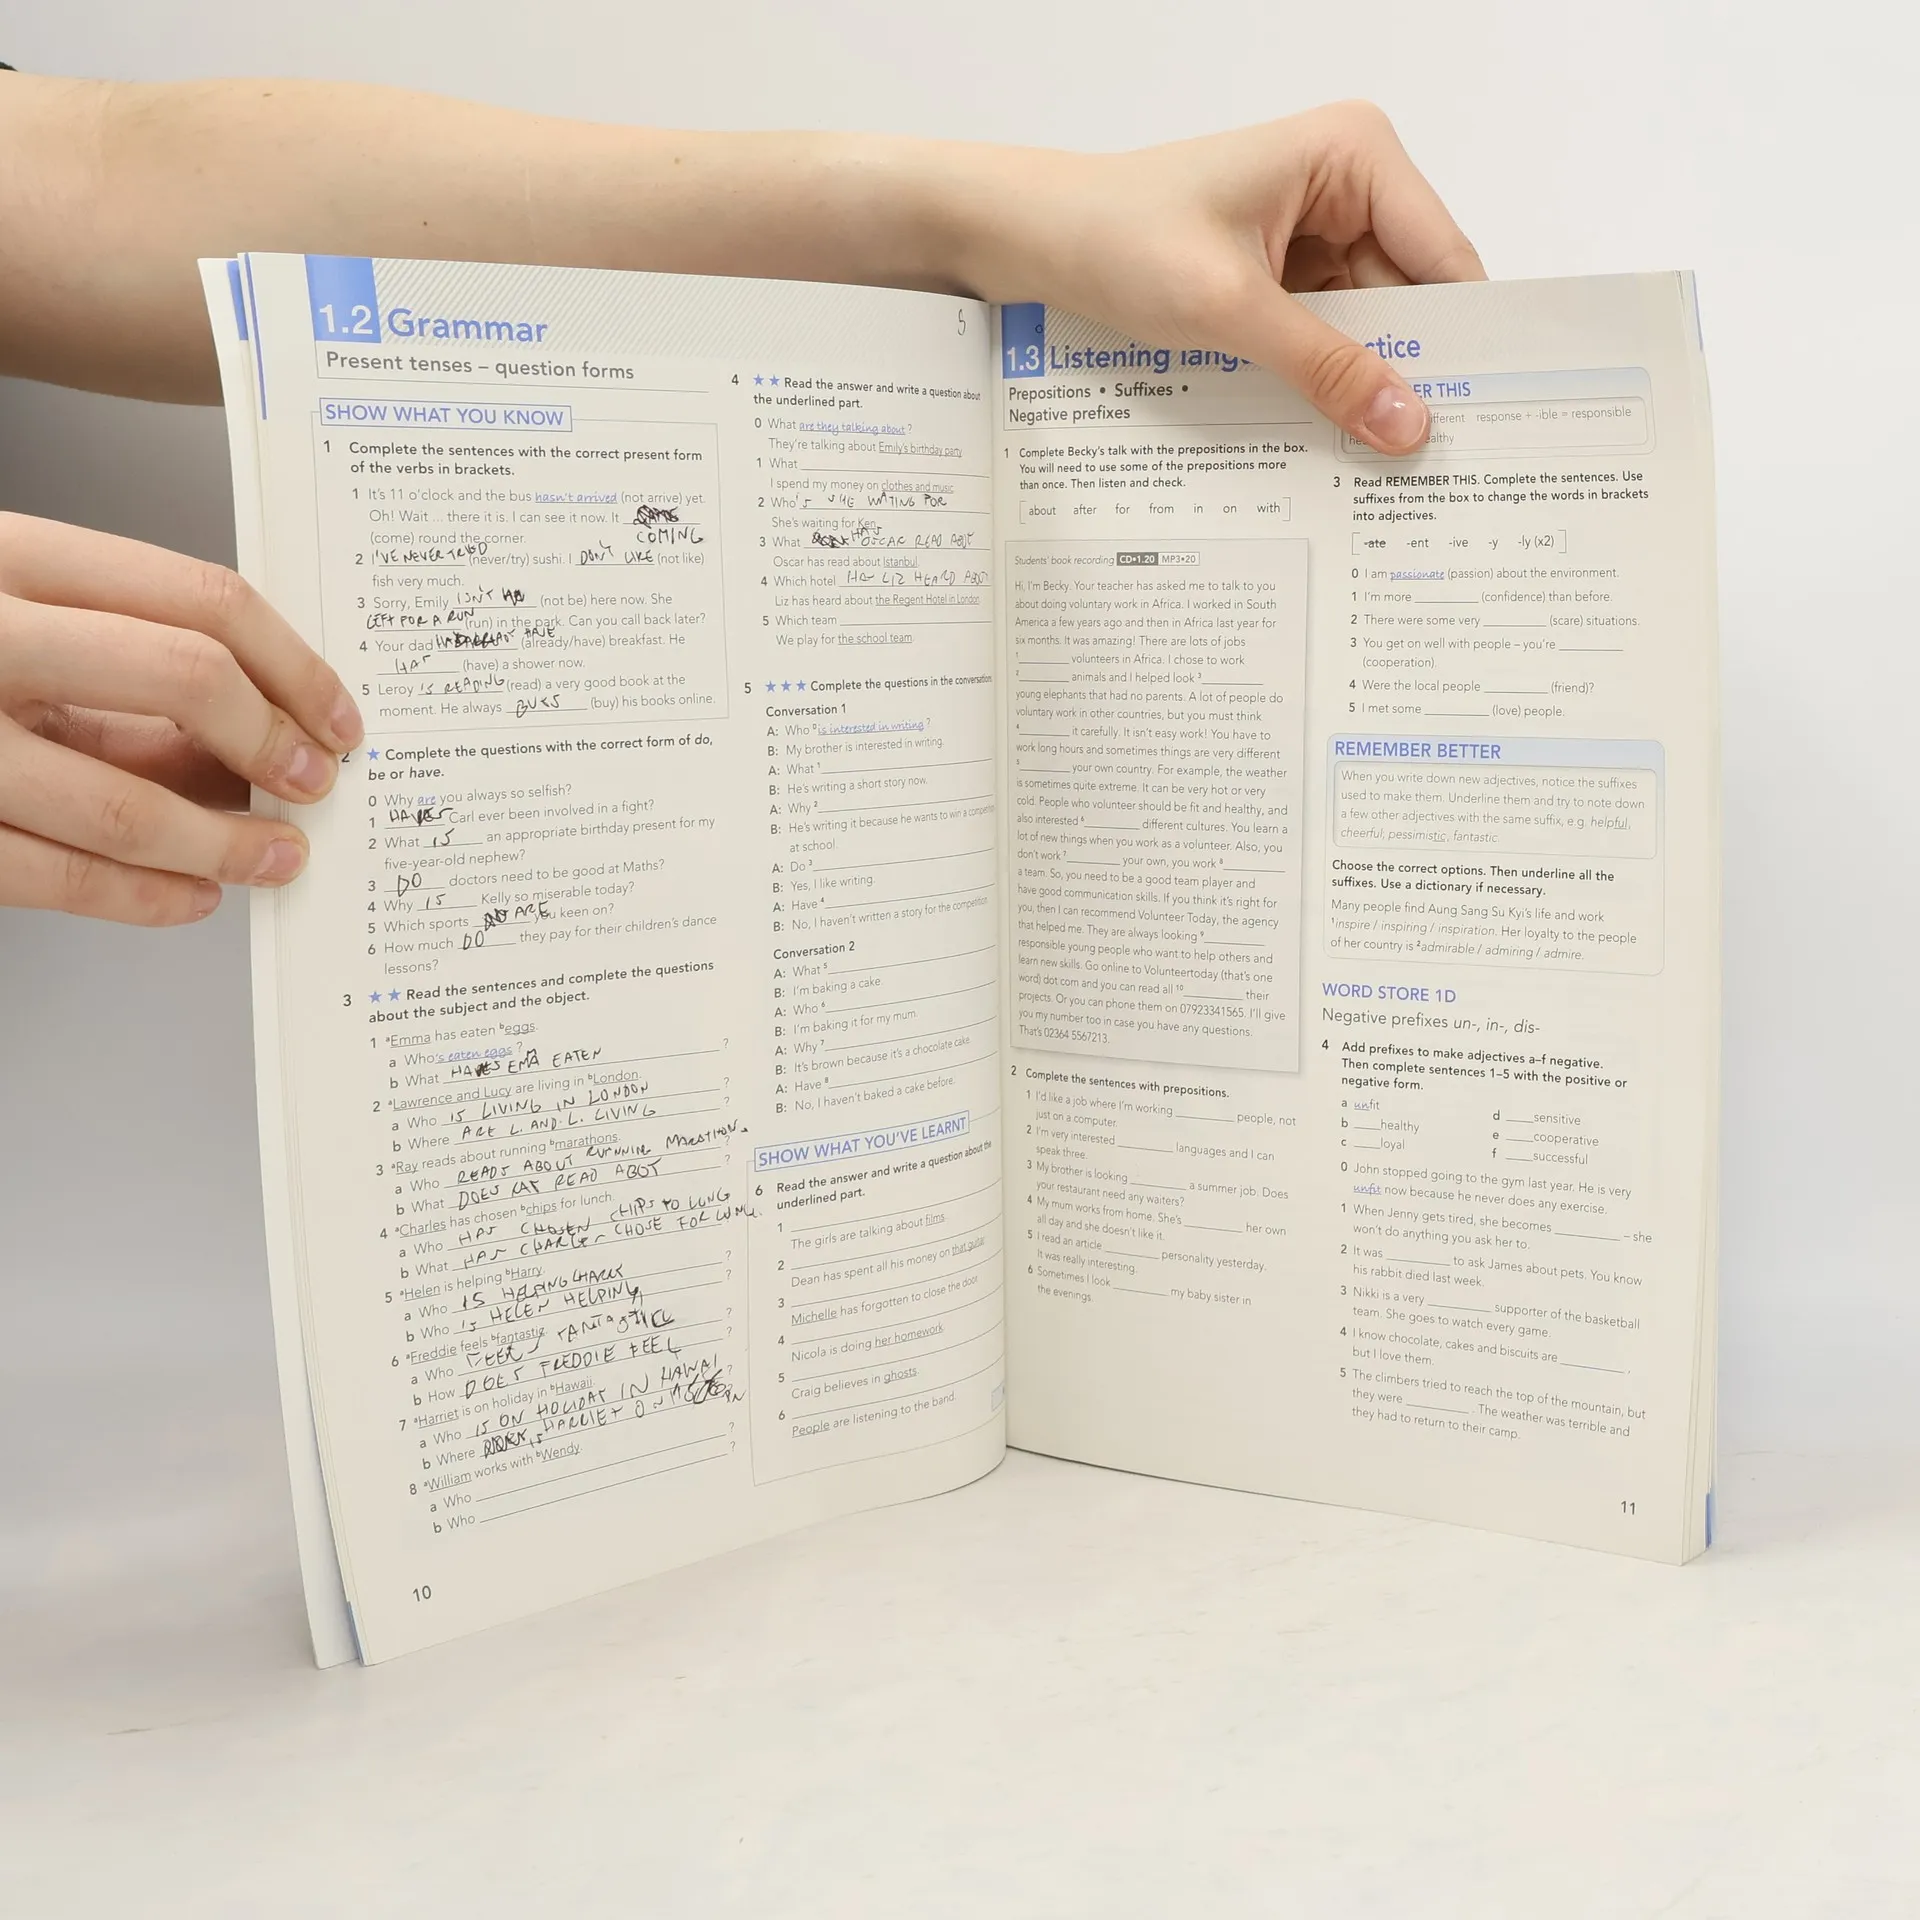 1.2 Grammar
Present tenses – question forms
SHOW WHAT YOU KNOW
1 Complete the sentences with the correct present form
of the verbs in brackets.
1 It's 11 o'clock and the bus hasn't arrived (not arrive) yet.
Oh! Wait ... there it is. I can see it now. It
(come) round the corner. COMING
2 I'VE NEVER TRIED (never/try) sushi. I DON'T LIKE (not like)
fish very much.
3 Sorry, Emily ISN'T (not be) here now. She
LEFT FOR A RUN (run) in the park. Can you call back later?
4 Your dad HAVE (already/have) breakfast. He
HAS (have) a shower now.
5 Leroy IS READING (read) a very good book at the
moment. He always BUYS (buy) his books online.
2 ★ Complete the questions with the correct form of do,
be or have.
0 Why are you always so selfish?
1 HAS Carl ever been involved in a fight?
2 What IS an appropriate birthday present for my
five-year-old nephew?
3 DO doctors need to be good at Maths?
4 Why IS Kelly so miserable today?
5 Which sports ARE you keen on?
6 How much DO they pay for their children's dance
lessons?
3 ★★ Read the sentences and complete the questions
about the subject and the object.
1 ᵃEmma has eaten ᵇeggs.
a Who's eaten eggs ?
b What HAS EMA EATEN ?
2 ᵃLawrence and Lucy are living in ᵇLondon.
a Who IS LIVING IN LONDON ?
b Where ARE L. AND. L. LIVING ?
3 ᵃRay reads about running ᵇmarathons.
a Who READS ABOUT RUNNING MARATHON ?
b What DOES RAY READ ABOT ?
4 ᵃCharles has chosen ᵇchips for lunch.
a Who HAS CHOSEN CHIPS TO LUNG
b What HAS CHARLES CHOSE FOR
5 ᵃHelen is helping ᵇHarry.
a Who IS HELPING HARRY ?
b Who IS HELEN HELPING ?
6 ᵃFreddie feels ᵇfantastic.
a Who FEELS ?
b How DOES FREDDIE FEEL ?
7 ᵃHarriet is on holiday in ᵇHawaii.
a Who IS ON HOLIDAY IN HAWAI ?
b Where IS HARRIET ON
8 ᵃWilliam works with ᵇWendy.
a Who ?
b Who ?
10
4 ★★ Read the answer and write a question about
the underlined part.
0 What are they talking about ?
They're talking about Emily's birthday party
1 What
I spend my money on clothes and music
2 Who'S SHE WATING FOR
She's waiting for Ken.
3 What HAS OSCAR READ ABOT
Oscar has read about Istanbul.
4 Which hotel HAS LIZ HEARD ABOT
Liz has heard about the Regent Hotel in London.
5 Which team
We play for the school team.
5 ★★★ Complete the questions in the conversation
Conversation 1
A: Who ⁰is interested in writing ?
B: My brother is interested in writing.
A: What ¹
B: He's writing a short story now.
A: Why ²
B: He's writing it because he wants to win a
at school.
A: Do ³
B: Yes, I like writing.
A: Have ⁴
B: No, I haven't written a story for the competition
Conversation 2
A: What ⁵
B: I'm baking a cake.
A: Who ⁶
B: I'm baking it for my mum.
A: Why ⁷
B: It's brown because it's a chocolate cake.
A: Have ⁸
B: No, I haven't baked a cake before.
SHOW WHAT YOU'VE LEARNT
6 Read the answer and write a question about the
underlined part.
1
The girls are talking about films.
2
Dean has spent all his money on that guitar.
3
Michelle has forgotten to close the door.
4
Nicola is doing her homework.
5
Craig believes in ghosts.
6
People are listening to the band.
1.3 Listening
Prepositions • Suffixes •
Negative prefixes
1 Complete Becky's talk with the prepositions in the box.
You will need to use some of the prepositions more
than once. Then listen and check.
about after for from in on with
Students' book recording CD•1.20 MP3•20
Hi, I'm Becky. Your teacher has asked me to talk to you
about doing voluntary work in Africa. I worked in South
America a few years ago and then in Africa last year for
six months. It was amazing! There are lots of jobs
¹ volunteers in Africa. I chose to work
² animals and I helped look ³
young elephants that had no parents. A lot of people do
voluntary work in other countries, but you must think
⁴ it carefully. It isn't easy work! You have to
work long hours and sometimes things are very different
⁵ your own country. For example, the weather
is sometimes quite extreme. It can be very hot or very
cold. People who volunteer should be fit and healthy, and
also interested ⁶ different cultures. You learn a
lot of new things when you work as a volunteer. Also, you
don't work ⁷ your own, you work ⁸
a team. So, you need to be a good team player and
have good communication skills. If you think it's right for
you, then I can recommend Volunteer Today, the agency
that helped me. They are always looking ⁹
responsible young people who want to help others and
learn new skills. Go online to Volunteertoday (that's one
word) dot com and you can read all ¹⁰ their
projects. Or you can phone them on 07923341565. I'll give
you my number too in case you have any questions.
That's 02364 5567213.
2 Complete the sentences with prepositions.
1 I'd like a job where I'm working people, not
just on a computer.
2 I'm very interested languages and I can
speak three.
3 My brother is looking a summer job. Does
your restaurant need any waiters?
4 My mum works from home. She's her own
all day and she doesn't like it.
5 I read an article personality yesterday.
It was really interesting.
6 Sometimes I look my baby sister in
the evenings.
ctice
ER THIS
ifferent response + -ible = responsible
ealthy
3 Read REMEMBER THIS. Complete the sentences. Use
suffixes from the box to change the words in brackets
into adjectives.
-ate -ent -ive -y -ly (x2)
0 I am passionate (passion) about the environment.
1 I'm more (confidence) than before.
2 There were some very (scare) situations.
3 You get on well with people – you're
(cooperation).
4 Were the local people (friend)?
5 I met some (love) people.
REMEMBER BETTER
When you write down new adjectives, notice the suffixes
used to make them. Underline them and try to note down
a few other adjectives with the same suffix, e.g. helpful,
cheerful; pessimistic, fantastic.
Choose the correct options. Then underline all the
suffixes. Use a dictionary if necessary.
Many people find Aung Sang Su Kyi's life and work
¹inspire / inspiring / inspiration. Her loyalty to the people
of her country is ²admirable / admiring / admire.
WORD STORE 1D
Negative prefixes un-, in-, dis-
4 Add prefixes to make adjectives a–f negative.
Then complete sentences 1–5 with the positive or
negative form.
a unfit
b healthy
c loyal
d sensitive
e cooperative
f successful
0 John stopped going to the gym last year. He is very
unfit now because he never does any exercise.
1 When Jenny gets tired, she becomes – she
won't do anything you ask her to.
2 It was to ask James about pets. You know
his rabbit died last week.
3 Nikki is a very supporter of the basketball
team. She goes to watch every game.
4 I know chocolate, cakes and biscuits are ,
but I love them.
5 The climbers tried to reach the top of the mountain, but
they were . The weather was terrible and
they had to return to their camp.
11